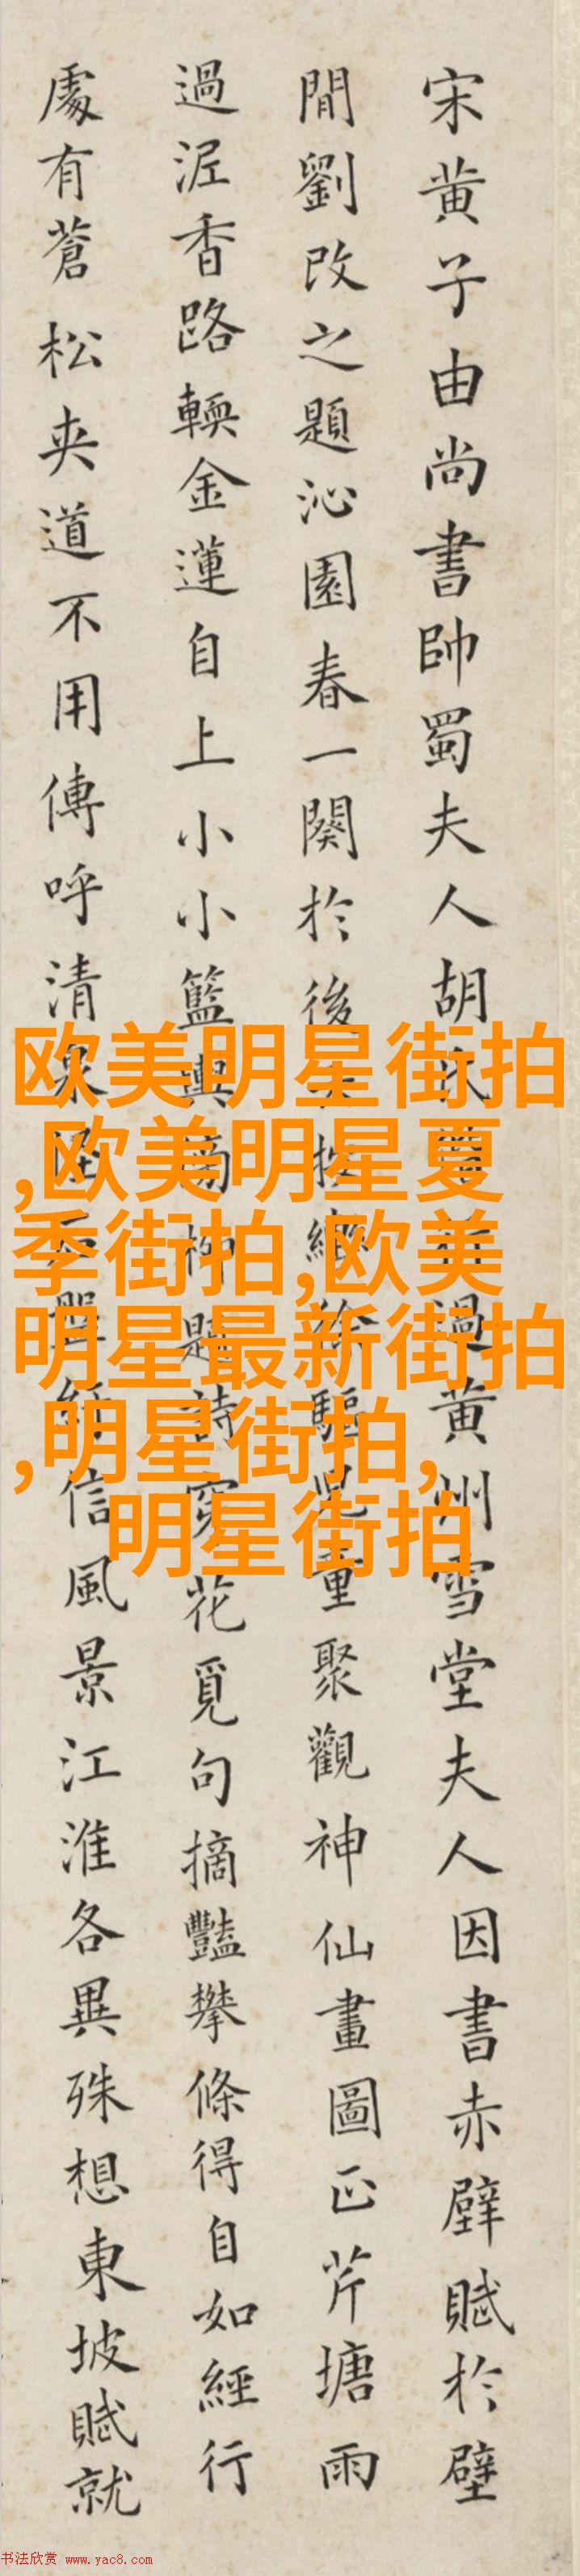 宋黄子由尚書帥蜀夫人胡過黄州雪堂夫人因書赤壁賦於壁
間劉改之題沁園春一闋於後驅童聚觀神仙畫圖正芹塘雨
過泥香路輭金蓮自上小小籃輿柳題詩穿花覓句摘豔攀條得自如經行
處有蒼松夾道不用傳呼清泉信風景江淮各異殊想東坡賦就
欧美明星街拍
,欧美明星夏
季街拍,欧美
明星最新街拍
,明星街拍,
明星街拍
书法欣赏 www.yac8.com